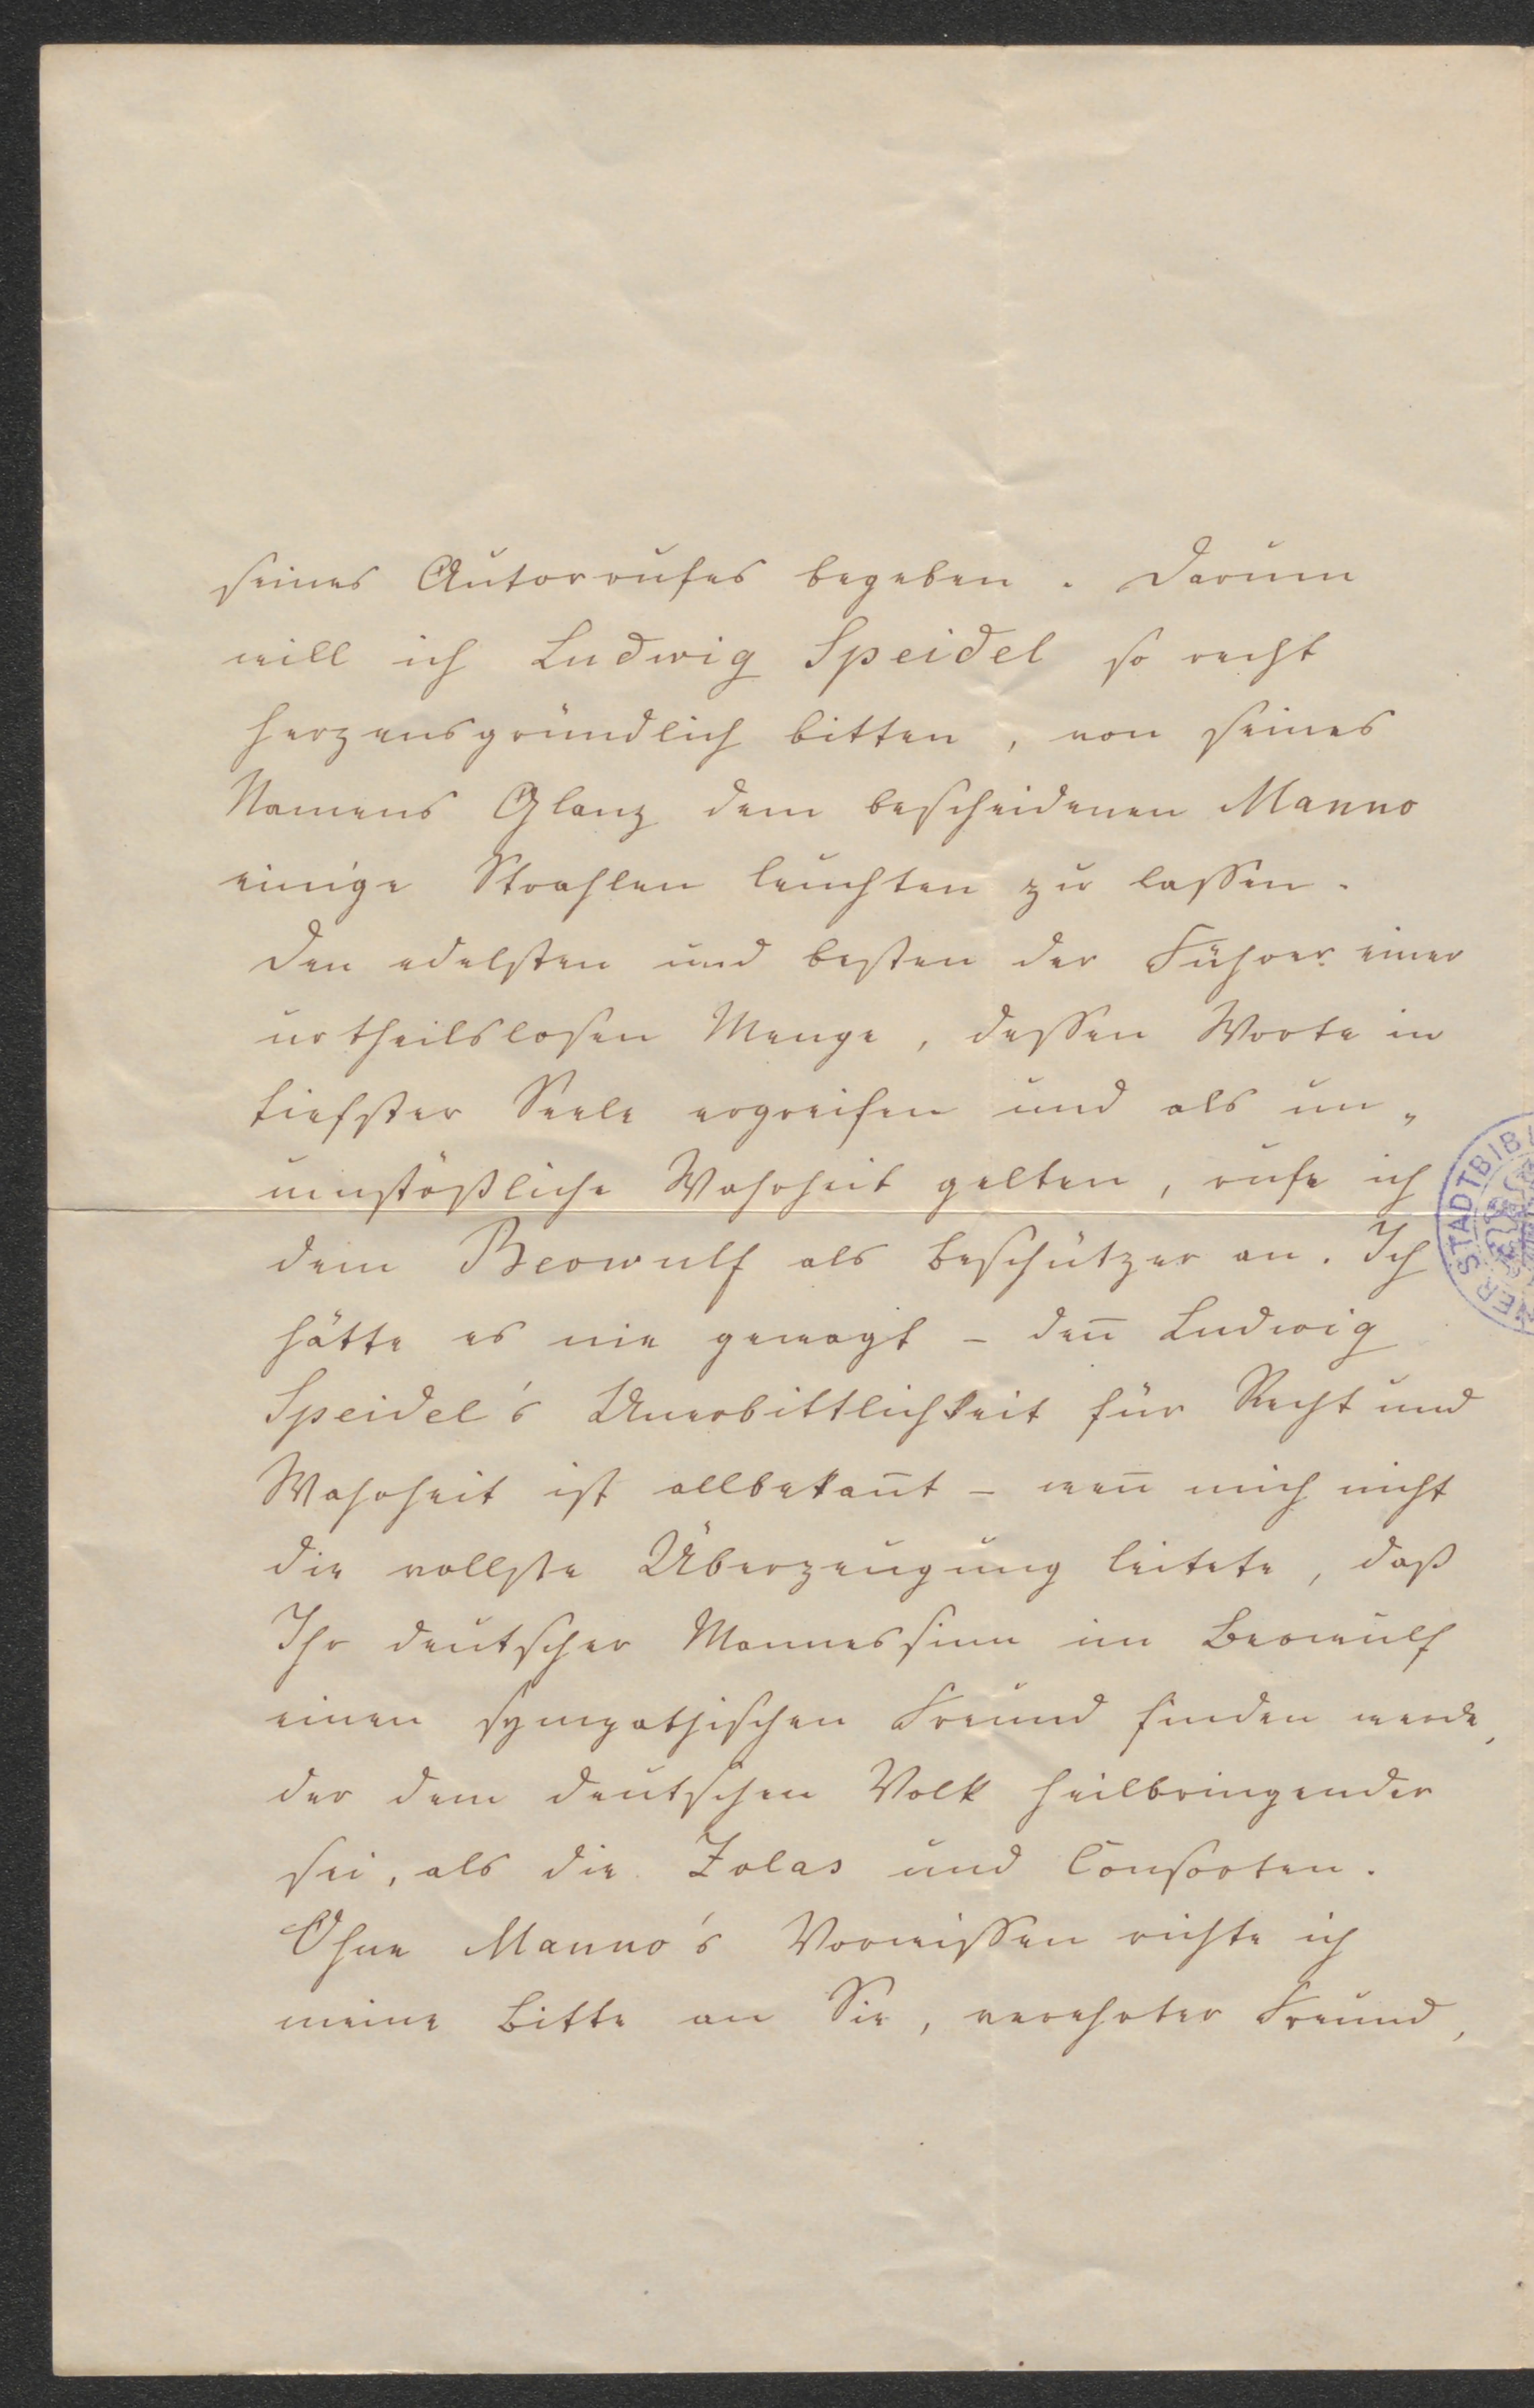 seines Autorrufes begeben. Darum
will ich Ludwig Speidel so recht
herzensgründlich bitten, von seines
Namens Glanz dem bescheidenen Manno
einige Strahlen leuchten zu lassen.
Den edelsten und besten der Führer einer
urtheilslosen Menge, dessen Worte in
tiefster Seele ergreifen und als un„
umstößliche Wahrheit gelten, rufe ich
dem Beowulf als Beschützer an. Ich
hätte es nie gewagt – den̄ Ludwig
Speidel's Unerbittlichkeit für Recht und
Wahrheit ist allbekan̄t – wen̄ mich nicht
die vollste Überzeugung leitete, daß
Ihr deutscher Mannessinn im Beowulf
einen sympathischen Freund finden werde,
der dem deutschen Volk heilbringender
sei, als die Zolas und Consorten.
Ohne Manno's Vorwissen richte ich
meine Bitte an Sie, verehrter Freund,
NER STADTBIB